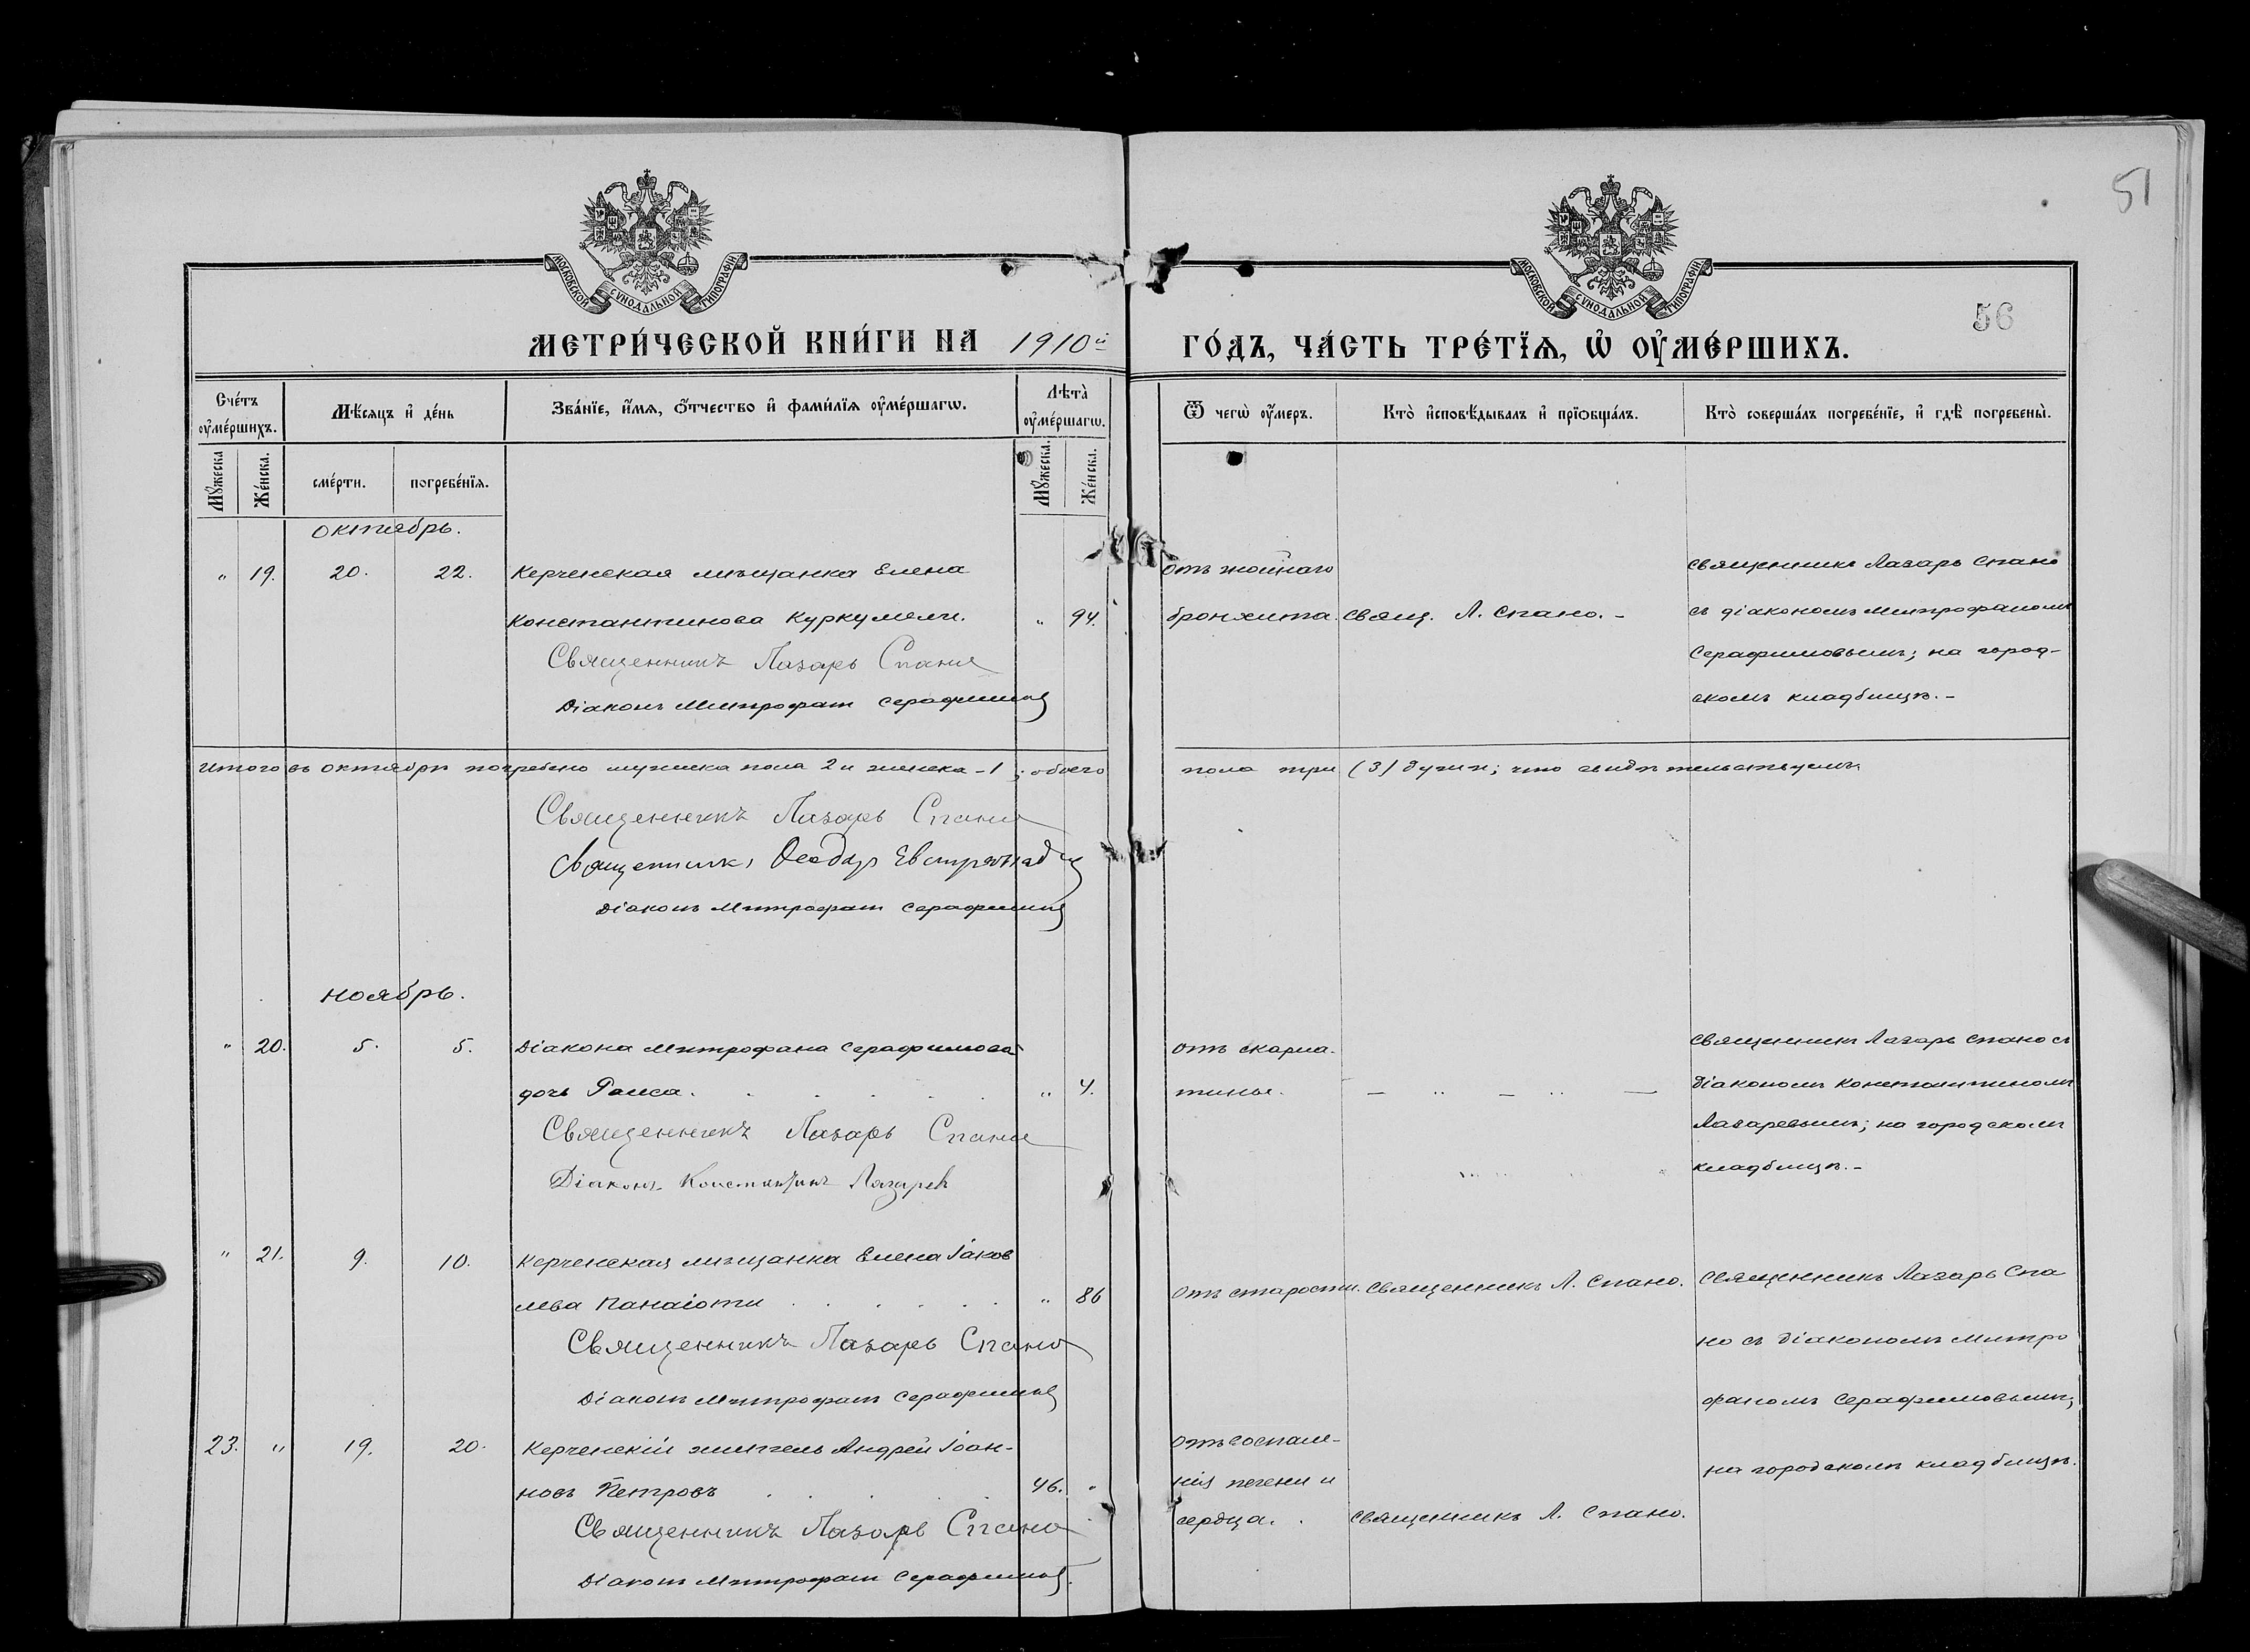 51
56
МОСКОВСКОЙ СѴНОДАЛЬНОЙ ТИПОГРАФІИ
МОСКОВСКОЙ СѴНОДАЛЬНОЙ ТИПОГРАФІИ
МЕТРИ́ЧЕСКОЙ КНИ́ГИ НА 1910й ГО́ДЪ, ЧА́СТЬ ТРЕ́ТЇѦ, Ѡ҆ ОУ҆МЕ́РШИХЪ.
Сче́тъ оу҆ме́ршихъ.
Мѣ́сяцъ и҆ де́нь
Зва́нїе, и҆́мѧ, ѻ҆́тчество и҆ фами́лїѧ оу҆ме́ршагѡ.
Лѣта̀ оу҆ме́ршагѡ.
Ѿ чегѡ̀ оу҆́меръ.
Кто̀ и҆сповѣ́дывалъ и҆ прїѻбща́лъ.
Кто̀ соверша́лъ погребе́нїе, и҆ гдѣ̀ погребены̀.
Мꙋ́жеска
Же́нска.
сме́рти.
погребе́нїѧ.
Мꙋ́жеска.
Же́нска.
октябрь.
" 19. 20. 22. Керченская мѣщанка Елена
Константинова Куркумели. " 94.
Священникъ Лазарь Спано
Діаконъ Митрофанъ Серафимовъ
отъ гнойнаго
бронхита. свящ. Л. Спано. –
священникъ Лазарь Спано
съ діакономъ Митрофаномъ
Серафимовымъ; на город-
скомъ кладбищѣ. –
Итого въ октябрѣ погребено мужеска пола 2 и женска – 1; обоего пола три (3) души; что свидѣтельствуемъ
Священникъ Лазарь Спано
Священникъ Ѳеодоръ
Діаконъ Митрофанъ Серафимовъ
ноябрь.
" 20. 5. 5. Діакона Митрофана Серафимова
дочь Раиса. " 4.
Священникъ Лазарь Спано
Діаконъ Константинъ Лазаревъ
отъ скарла-
тины. — " — " —
священникъ Лазарь Спано съ
діакономъ Константиномъ
Лазаревымъ; на городскомъ
кладбищѣ. –
" 21. 9. 10. Керченская мѣщанка Елена Іаков
лева Панаіоти " 86
Священникъ Лазарь Спано
Діаконъ Митрофанъ Серафимовъ
отъ старости. священникъ Л. Спано.
священникъ Лазарь Спа
но съ діакономъ Митро
фаномъ Серафимовымъ;
на городскомъ кладбищѣ.
23. " 19. 20. Керченскій житель Андрей Іоан-
новъ Петровъ 46. "
Священникъ Лазарь Спано
Діаконъ Митрофанъ Серафимовъ.
отъ воспале-
нія печени и
сердца. священникъ Л. Спано.